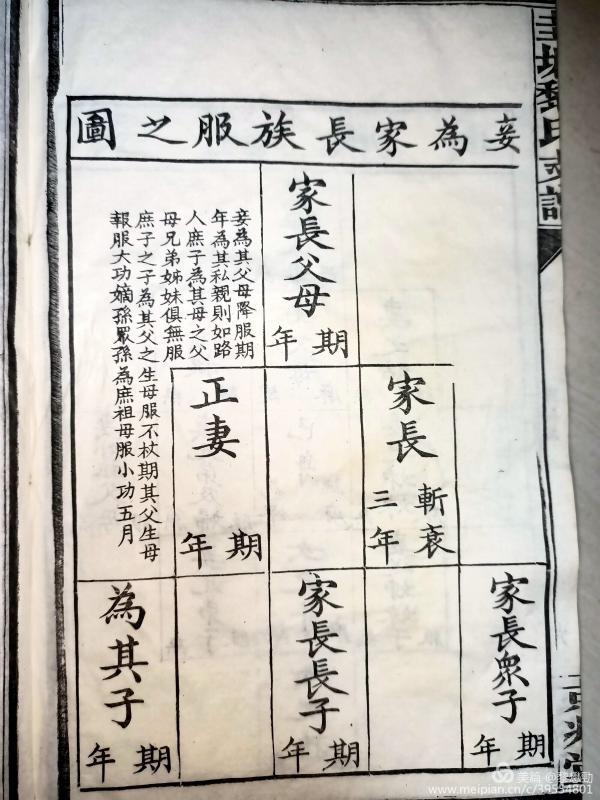 妾為家長族服之圖
家長父母
期年
妾為其父母降服期
年為其私親則如路
人庶子為其母之父
母兄弟姊妹俱無服
庶子之子為其父之生母服不杖期其父生母
報服大功嫡孫眾孫為庶祖母服小功五月
家長
斬衰
三年
正妻
期年
家長衆子
期年
家長長子
期年
為其子
期年
氏支譜
美篇@黎懋勁
www.meipian.cn/c/39534801